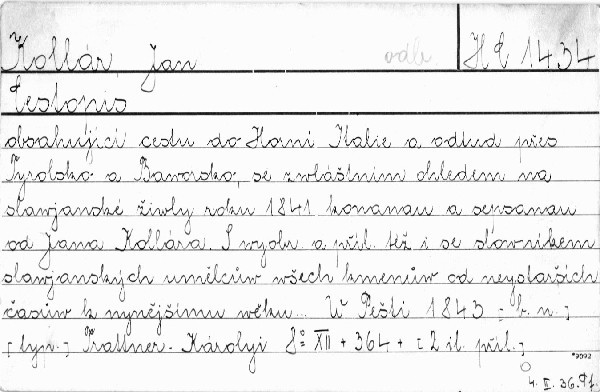 Kollár, Jan odb. H E 1434
Cestopis
obsahující cestu do Horní Italie a odtud přes
Tyrolsko a Baworsko, se zwláštním ohledem na
slawjanské žiwly roku 1841 konanau a sepsanau
od Jana Kollára. S wyobr. a příl. též i se slowníkem
slawjanských umělcůw wšech kmenůw od neystarších
časůw k nynějšímu wěku... W Pešti 1843 [b. n.]
[typ.] Trattner-Károlyi 8° XII + 364 + [2 il. příl.]
*9092
4. II. 36.